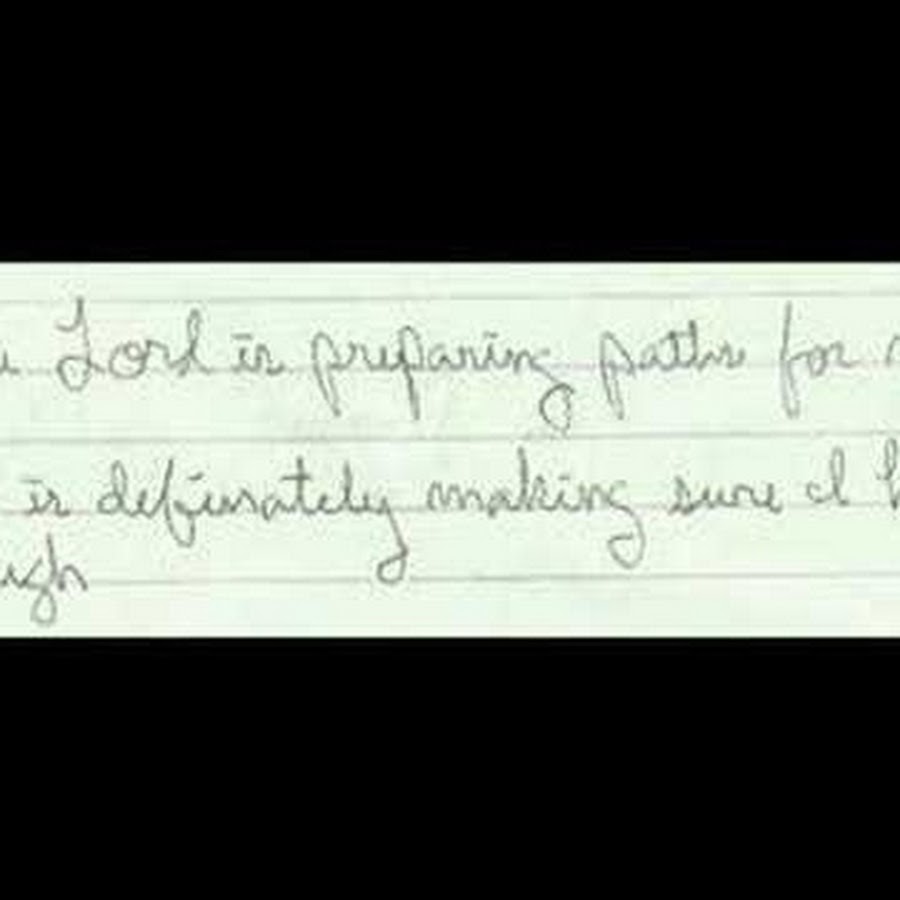 Lord is preparing paths for
is definately making sure I